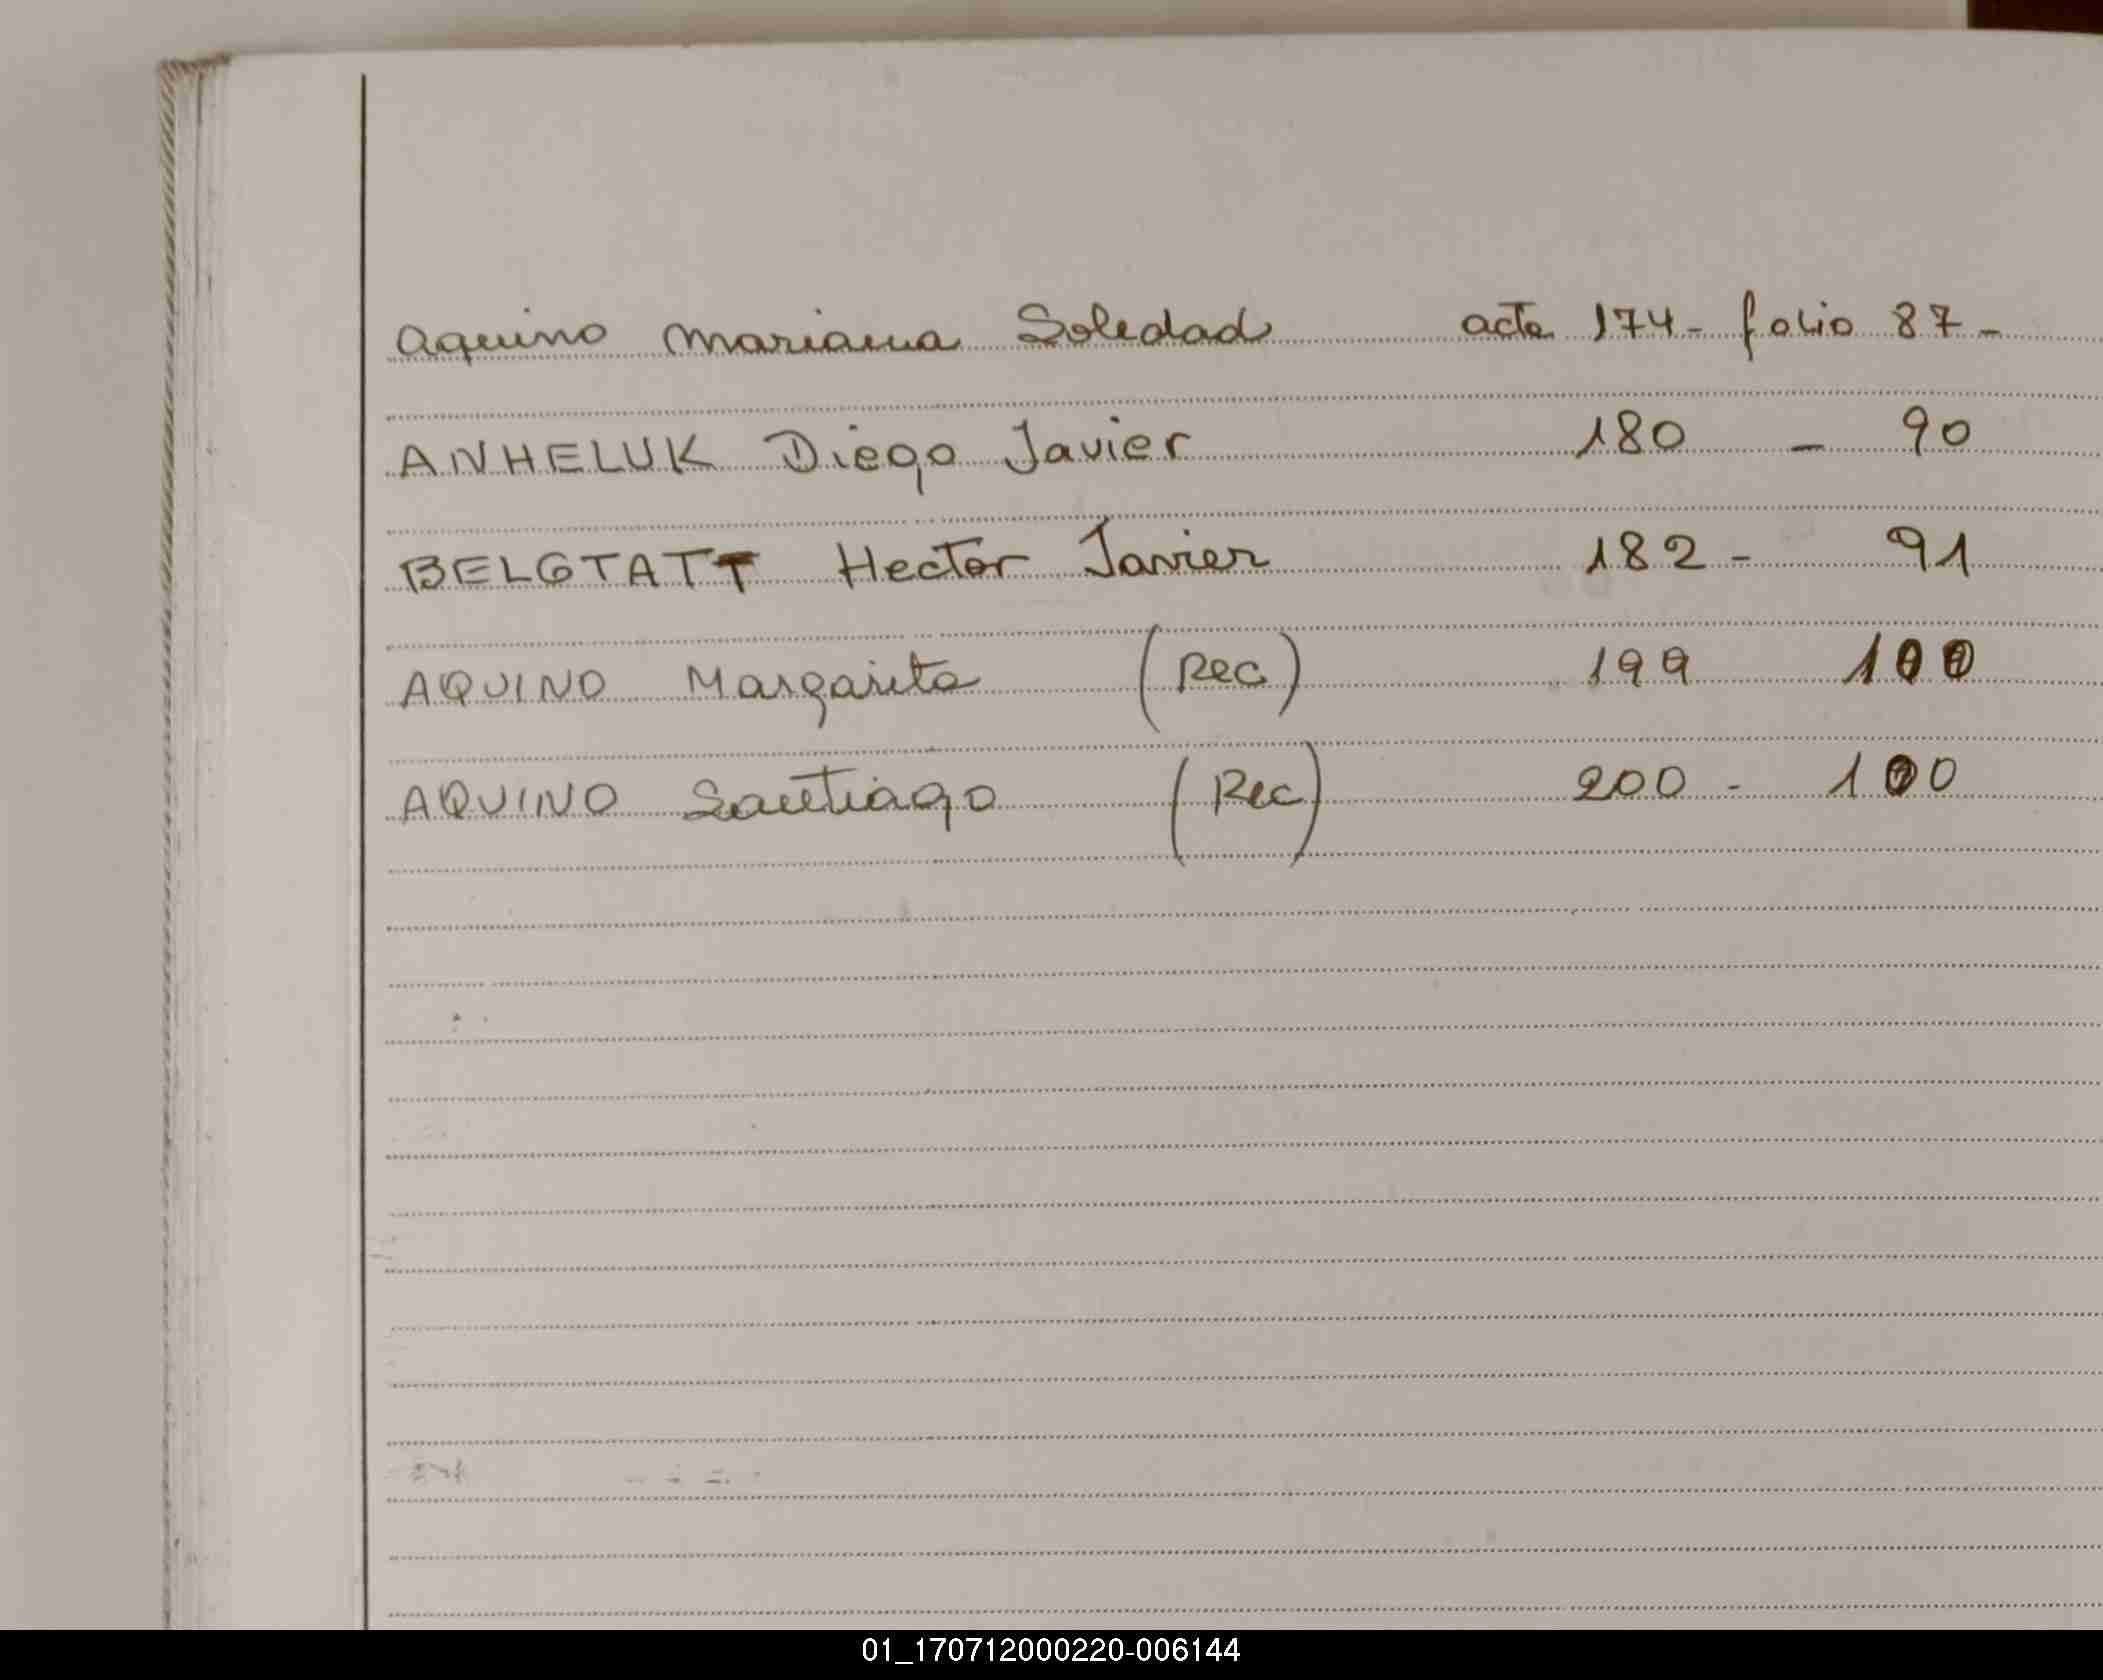 Aquino Mariana Soledad acta 174 - folio 87 -
ANHELUK Diego Javier 180 - 90
BELGTATT Hector Javier 182 - 91
AQUINO Margarita (Rec) 199 100
AQUINO Santiago (Rec) 200 - 100
01_170712000220-006144